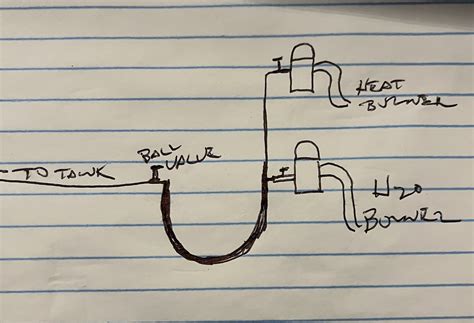 HEAT
BURNER
BALL
VALVE
- TO TANK
H2O
BURNER